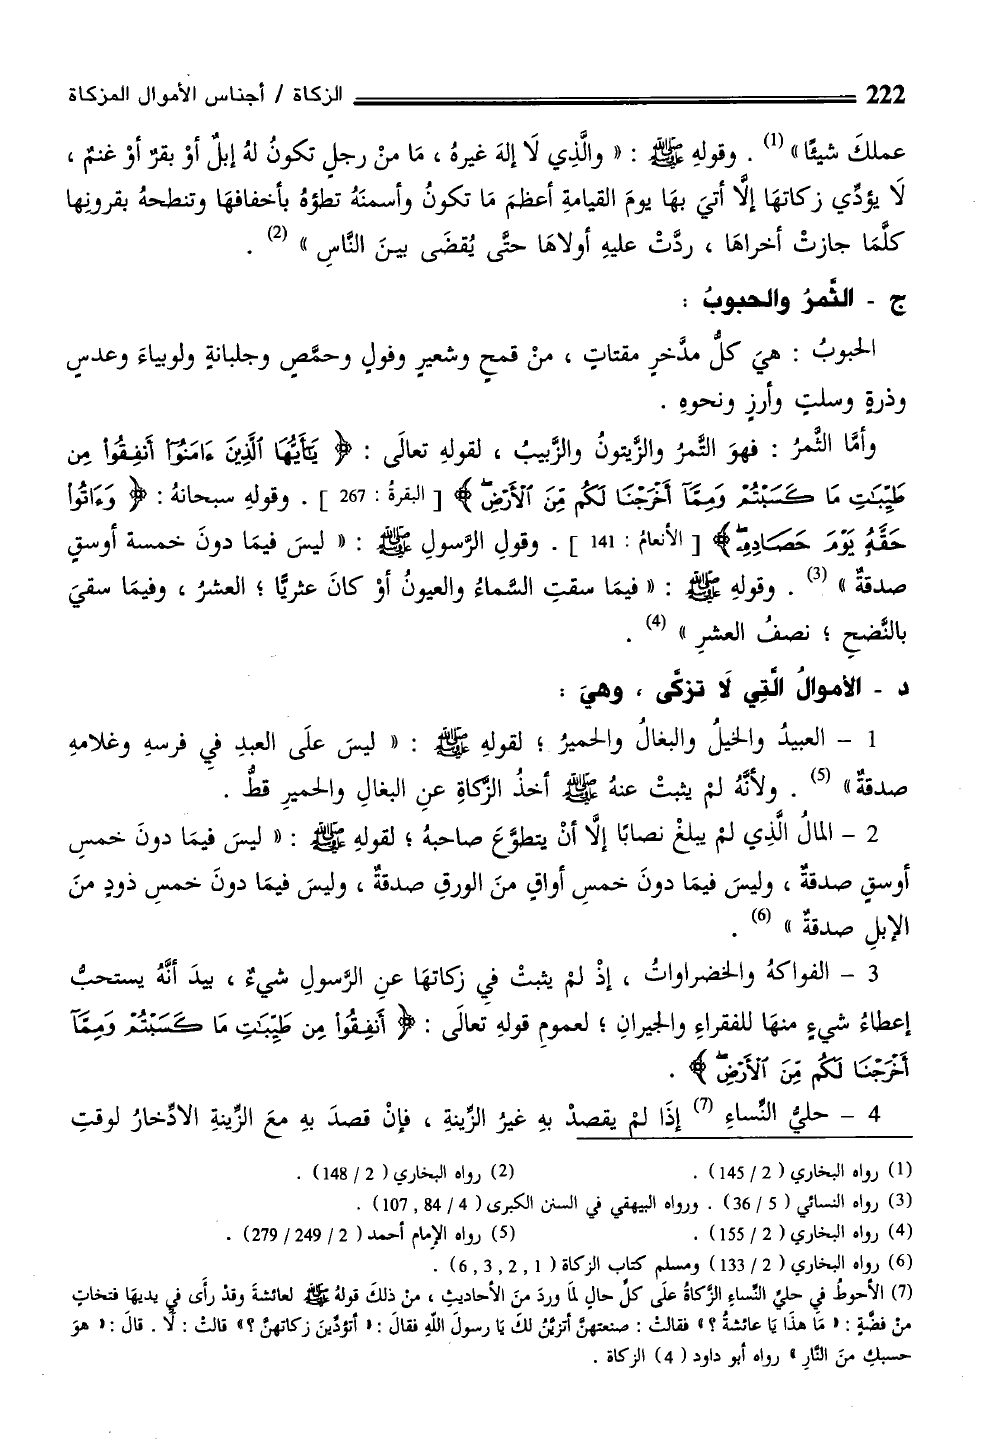 222 الزكاة / أجناس الأموال المزكاة
عملكَ شيئًا» (1) . وقولهِ ﷺ : « والَّذِي لَا إلهَ غيرهُ ، مَا منْ رجلٍ تكونُ لهُ إبلٌ أوْ بقرٌ أوْ غنمٌ ،
لَا يؤدِّي زكاتهَا إلَّا أتيَ بهَا يومَ القيامةِ أعظمَ مَا تكونُ وأسمنَهُ تطؤهُ بأخفافهَا وتنطحهُ بقرونِها
كلَّمَا جازتْ أخراهَا ، ردَّتْ عليهِ أولاهَا حتَّى يُقضَى بينَ النَّاسِ » (2) .
ج - الثَّمرُ والحبوبُ :
الحبوبُ : هيَ كلُّ مدَّخرٍ مقتاتٍ ، منْ قمحٍ وشعيرٍ وفولٍ وحمَّصٍ وجلبانةٍ ولوبياءَ وعدسٍ
وذرةٍ وسلتٍ وأرزٍ ونحوهِ .
وأمَّا الثَّمرُ : فهوَ التَّمرُ والزَّيتونُ والزَّبيبُ ، لقولهِ تعالَى : ﴿ يَـٰٓأَيُّهَا ٱلَّذِينَ ءَامَنُوٓا۟ أَنفِقُوا۟ مِن
طَيِّبَـٰتِ مَا كَسَبْتُمْ وَمِمَّآ أَخْرَجْنَا لَكُم مِّنَ ٱلْأَرْضِ ۖ﴾ [ البقرةُ : 267 ] . وقولهِ سبحانهُ : ﴿ وَءَاتُوا۟
حَقَّهُۥ يَوْمَ حَصَادِهِۦ ۖ﴾ [ الأنعامُ : 141 ] . وقولِ الرَّسولِ ﷺ : « ليسَ فيمَا دونَ خمسة أوسقٍ
صدقةٌ » (3) . وقولهِ ﷺ : « فيمَا سقتِ السَّماءُ والعيونُ أوْ كانَ عثريًّا ؛ العشرُ ، وفيمَا سقيَ
بالنَّضحِ ؛ نصفُ العشرِ » (4) .
د - الأموالُ الَّتِي لَا تزكَّى ، وهيَ :
1 – العبيدُ والخيلُ والبغالُ والحميرُ ؛ لقولهِ ﷺ : « ليسَ علَى العبدِ فِي فرسهِ وغلامهِ
صدقةٌ» (5) . ولأنَّهُ لمْ يثبتْ عنهُ ﷺ أخذُ الزَّكاةِ عنِ البغالِ والحميرِ قطُّ .
2 – المالُ الَّذِي لمْ يبلغْ نصابًا إلَّا أنْ يتطوَّعَ صاحبهُ ؛ لقولهِ ﷺ : « ليسَ فيمَا دونَ خمسِ
أوسقٍ صدقةٌ ، وليسَ فيمَا دونَ خمسِ أواقٍ منَ الورقِ صدقةٌ ، وليسَ فيمَا دونَ خمسِ ذودٍ منَ
الإبلِ صدقةٌ » (6) .
3 – الفواكهُ والخضراواتُ ، إذْ لمْ يثبتْ فِي زكاتهَا عنِ الرَّسولِ شيءٌ ، بيدَ أنَّهُ يستحبُّ
إعطاءُ شيءٍ منهَا للفقراءِ والجيرانِ ؛ لعمومِ قولهِ تعالَى : ﴿ أَنفِقُوا۟ مِن طَيِّبَـٰتِ مَا كَسَبْتُمْ وَمِمَّآ
أَخْرَجْنَا لَكُم مِّنَ ٱلْأَرْضِ ۖ ﴾ .
4 – حليُّ النِّساءِ (7) إذَا لمْ يقصدْ بهِ غيرُ الزِّينةِ ، فإنْ قصدَ بهِ معَ الزِّينةِ الادِّخارُ لوقتِ
(1) رواه البخاري ( 2 / 145) . (2) رواه البخاري ( 2 / 148) .
(3) رواه النسائي ( 5 / 36) . ورواه البيهقي في السنن الكبرى ( 4 / 84 , 107) .
(4) رواه البخاري ( 2 / 155) . (5) رواه الإمام أحمد ( 2 / 249 / 279) .
(6) رواه البخاري ( 2 / 133) ومسلم كتاب الزكاة ( 1 , 2 , 3 , 6) .
(7) الأحوطُ فِي حليِّ النِّساءِ الزَّكاةُ علَى كلِّ حالٍ لمَا وردَ منَ الأحاديثِ ، منْ ذلكَ قولهُ ﷺ لعائشةَ وقدْ رأَى فِي يديهَا فتخاتٍ
منْ فضَّةٍ : « مَا هذَا يَا عائشةُ ؟ » فقالتْ : صنعتهنَّ أتزيَّنُ لكَ يَا رسولَ اللّهِ فقالَ : « أتؤدِّينَ زكاتهنَّ ؟» قالتْ : لَا . قالَ : « هوَ
حسبكِ منَ النَّارِ » رواه أبو داود ( 4) الزكاة .